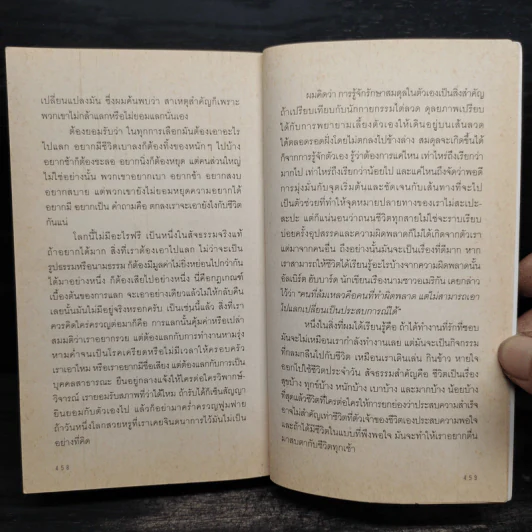 เปลี่ยนแปลงมัน ซึ่งผมค้นพบว่า สาเหตุสำคัญก็เพราะ
พวกเขาไม่กล้าแลกหรือไม่ยอมแลกนั่นเอง
ต้องยอมรับว่า ในทุกการเลือกมันต้องเอาอะไร
ไปแลก อยากมีชีวิตเบาลงก็ต้องทิ้งของหนัก ๆ ไปบ้าง
อยากช้าก็ต้องชะลอ อยากนิ่งก็ต้องหยุด แต่คนส่วนใหญ่
ไม่ใช่อย่างนั้น พวกเขาอยากเบา อยากช้า อยากสงบ
อยากสบาย แต่พวกเขายังไม่ยอมหยุดความอยากได้
อยากมี อยากเป็น คำถามคือ ตกลงเราจะเอายังไงกับชีวิต
กันแน่
โลกนี้ไม่มีอะไรฟรี เป็นหนึ่งในสัจธรรมจริงแท้
ถ้าอยากได้มาก สิ่งที่เราต้องเอาไปแลก ไม่ว่าจะเป็น
รูปธรรมหรือนามธรรม ก็ต้องมีมูลค่าไม่ยิ่งหย่อนไปกว่ากัน
ได้มาอย่างหนึ่ง ก็ต้องเสียไปอย่างหนึ่ง นี่คือกฎเกณฑ์
เบื้องต้นของการแลก จะเอาอย่างเดียวแล้วไม่ให้กลับคืน
เลยนั้นมันไม่มีอยู่จริงหรอกครับ เป็นเช่นนี้แล้ว สิ่งที่เรา
ควรคิดใคร่ครวญต่อมาก็คือ การแลกนั้นคุ้มค่าหรือเปล่า
สมมติว่าเราอยากรวย แต่ต้องแลกกับการทำงานหามรุ่ง
หามค่ำจนเป็นโรคเครียดหรือไม่มีเวลาให้ครอบครัว
เราเอาไหม หรือเราอยากมีชื่อเสียง แต่ต้องแลกกับการเป็น
บุคคลสาธารณะ ยืนอยู่กลางแจ้งให้ใครต่อใครวิพากษ์-
วิจารณ์ เรายอมรับสภาพที่ว่าได้ไหม ถ้ารับได้ก็เซ็นสัญญา
ยินยอมกับตัวเองไป แล้วก็อย่ามาคร่ำครวญฟูมฟาย
ถ้าวันหนึ่งโลกสวยหรูที่เราเคยจินตนาการไว้มันไม่เป็น
อย่างที่คิด
ผมคิดว่า การรู้จักรักษาสมดุลในตัวเองเป็นสิ่งสำคัญ
ถ้าเปรียบเทียบกับนักกายกรรมไต่ลวด ดุลยภาพเปรียบ
ได้กับการพยายามเลี้ยงตัวเองให้เดินอยู่บนเส้นลวด
ได้ตลอดรอดฝั่งโดยไม่ตกลงไปข้างล่าง สมดุลจะเกิดขึ้นได้
ก็จากการรู้จักตัวเอง รู้ว่าต้องการแค่ไหน เท่าไหร่ถึงเรียกว่า
มากไป เท่าไหร่ถึงเรียกว่าน้อยไป และแค่ไหนถึงจัดว่าพอดี
การมุ่งมั่นกับจุดเริ่มต้นและชัดเจนกับเส้นทางที่จะไป
เป็นตัวช่วยที่ทำให้จุดหมายปลายทางของเราไม่สะเปะ-
สะปะ แต่ก็แน่นอนว่าถนนชีวิตทุกสายไม่ใช่จะราบเรียบ
บ่อยครั้งอุปสรรคและความผิดพลาดก็ไม่ได้เกิดจากตัวเรา
แต่มาจากคนอื่น ถึงอย่างนั้นมันจะเป็นเรื่องที่ดีมาก หาก
เราสามารถให้ชีวิตได้เรียนรู้อะไรบ้างจากความผิดพลาดนั้น
อัลเบิร์ต ฮับบาร์ด นักเขียนเรืองนามชาวอเมริกัน เคยกล่าว
ไว้ว่า "คนที่ล้มเหลวคือคนที่ทำผิดพลาด แต่ไม่สามารถเอา
ไปแลกเปลี่ยนเป็นประสบการณ์ได้"
หนึ่งในสิ่งที่ผมได้เรียนรู้คือ ถ้าได้ทำงานที่รักที่ชอบ
มันจะไม่เหมือนเรากำลังทำงานเลย แต่มันจะเป็นกิจกรรม
ที่กลมกลืนไปกับชีวิต เหมือนเราเดินเล่น กินข้าว หายใจ
ออกไปใช้ชีวิตประจำวัน สัจธรรมสำคัญคือ ชีวิตเป็นเรื่อง
สุขบ้าง ทุกข์บ้าง หนักบ้าง เบาบ้าง และมากบ้าง น้อยบ้าง
ที่สุดแล้วชีวิตที่ใครต่อใครให้การยกย่องว่าประสบความสำเร็จ
อาจไม่สำคัญเท่าชีวิตที่ตัวเจ้าของชีวิตเองประสบความพอใจ
และถ้าได้มีชีวิตในแบบที่พึงพอใจ มันจะทำให้เราอยากตื่น
มาสบตากับชีวิตทุกเช้า